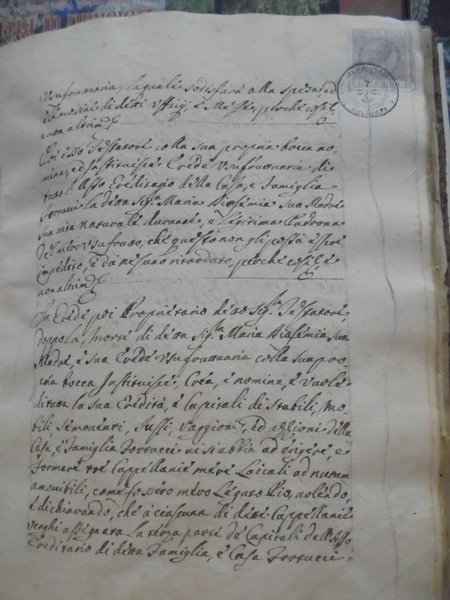 Usufruttuaria, la quale sodisfarà alla spesa, ed
elemosine di detti Uffizj, e Messe, perche così, e
non altrimti
Poi esso Sig.r Testatore colla sua propria bocca no-
mina, ed Instituisce Erede Usufruttuaria di
tutto l'Asse Ereditario della Casa, e Famiglia
Ferrucci la detta Sig.ra Maria Biasemia sua Madre
sua vita naturale durante, e legitima Padrona
dell'Usufrutto, che questo non gli possa essere
impedito, e da nessuno ritardato, perche così, e
non altrimti
In Eredi poi Proprietario detto Sig.r Testatore
doppo la morte di detta Sig.ra Maria Biasemia sua
Madre, e sua Erede Usufruttuaria colla sua pro-
pria bocca Instituisce, Crea, e nomina, e vuole
di tutta la sua Eredità, e Capitali di Stabili, Mo-
bili, Semoventi, Jussi, raggioni, ed azzioni della
Casa, e Famiglia Ferrucci ne si abbia ad erigere, e
formare tre Cappellanie mere Laicali ad nutum
amovibili, come fossero mero Legato Pio, volendo,
e dichiarando, che a ciascuna di dette Cappellanie
venghi assegnata la terza parte de Capitali dell'Asse
Ereditario di detta Famiglia, e Casa Ferrucci